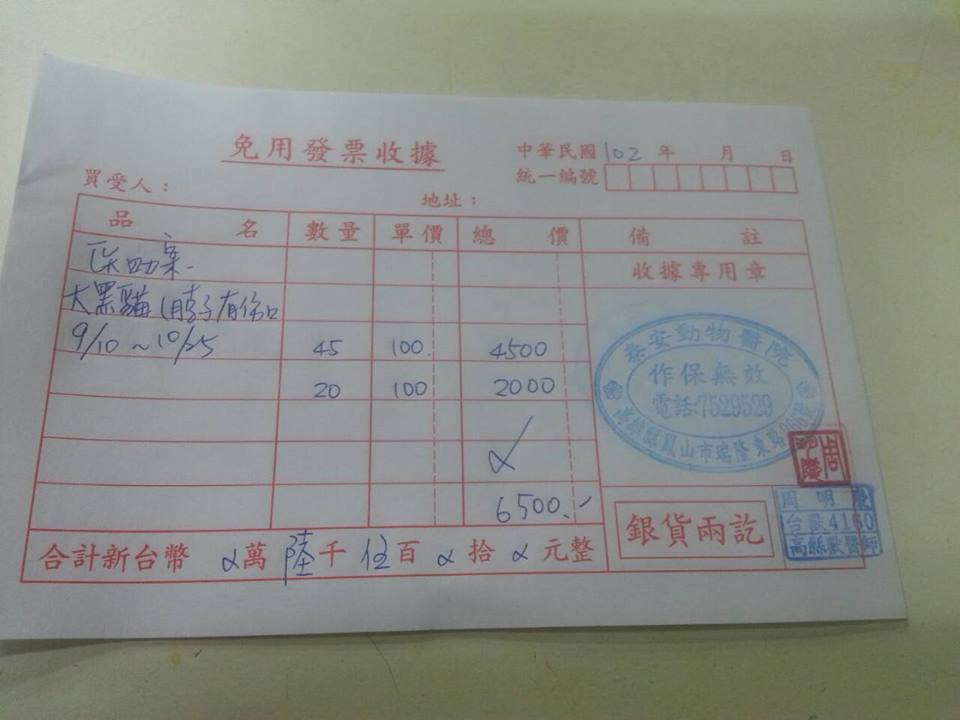 免用發票收據
中華民國102年 月 日
統一編號
買受人：
地址：
品名 數量 單價 總價 備註
收據專用章
大黑貓(脖子有傷口
9/10~10/25 45 100. 4500
20 100 2000
6500.-
泰安動物醫院
作保無效
電話:7529529
鳳山市瑞隆東路
銀貨兩訖
周明
台獸4160
高縣獸醫師
合計新台幣 萬陸千伍百 拾 元整